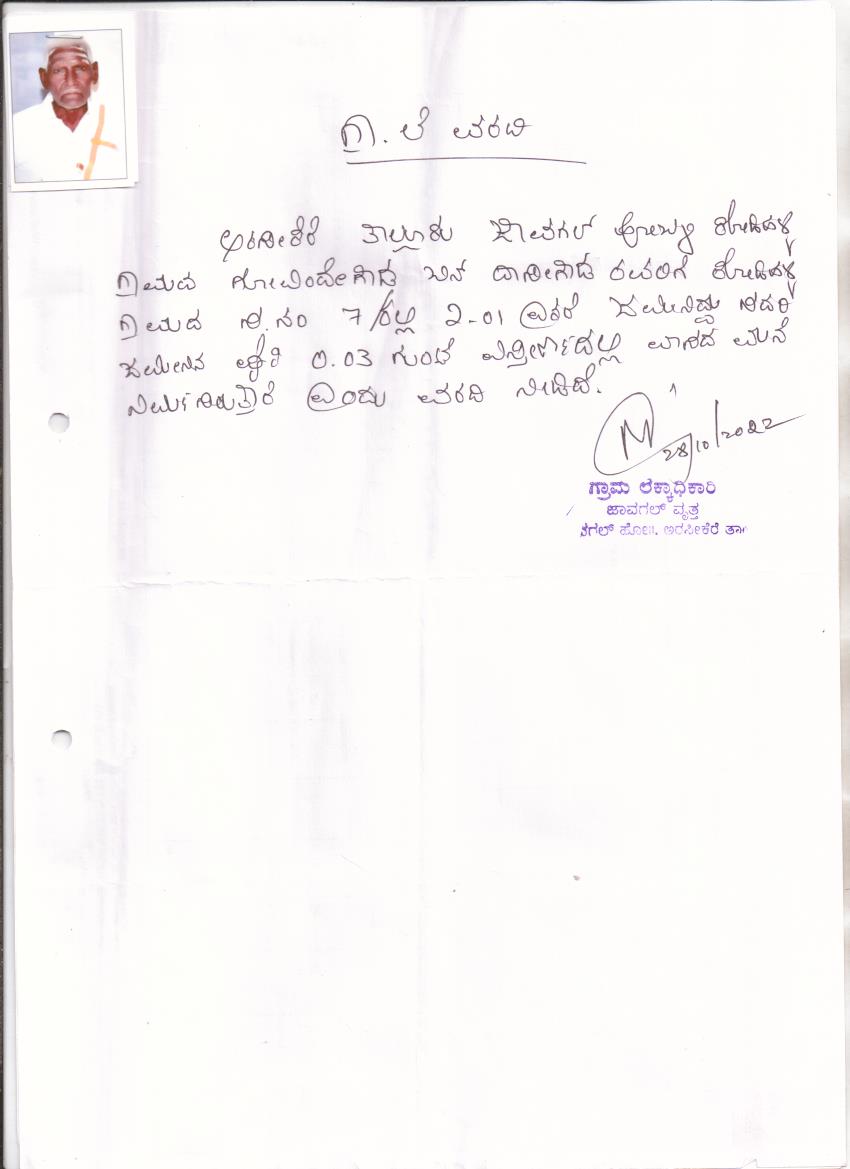 ಗ್ರಾ. ಲೆ ವರದಿ
ಅರಸೀಕೆರೆ ತಾಲ್ಲೂಕು ಜಾವಗಲ್ ಹೋಬಳಿ ಕೋಡಿಹಳ್ಳಿ
ಗ್ರಾಮದ ಗೋವಿಂದೇಗೌಡ ಬಿನ್ ದಾಸೇಗೌಡ ರವರಿಗೆ ಕೋಡಿಹಳ್ಳಿ
ಗ್ರಾಮದ ಸ.ನಂ 7 ರಲ್ಲಿ 2-01 ಎಕರೆ ಜಮೀನಿದ್ದು ಸದರಿ
ಜಮೀನಿನ ಪೈಕಿ 0.03 ಗುಂಟೆ ವಿಸ್ತೀರ್ಣದಲ್ಲಿ ವಾಸದ ಮನೆ
ನಿರ್ಮಿಸಿರುತ್ತಾರೆ ಎಂದು ವರದಿ ನೀಡಿದೆ.
28/10/2022
ಗ್ರಾಮ ಲೆಕ್ಕಾಧಿಕಾರಿ
ಜಾವಗಲ್ ವೃತ್ತ
ವಗಲ್ ಹೋ., ಅರಸೀಕೆರೆ ತಾ